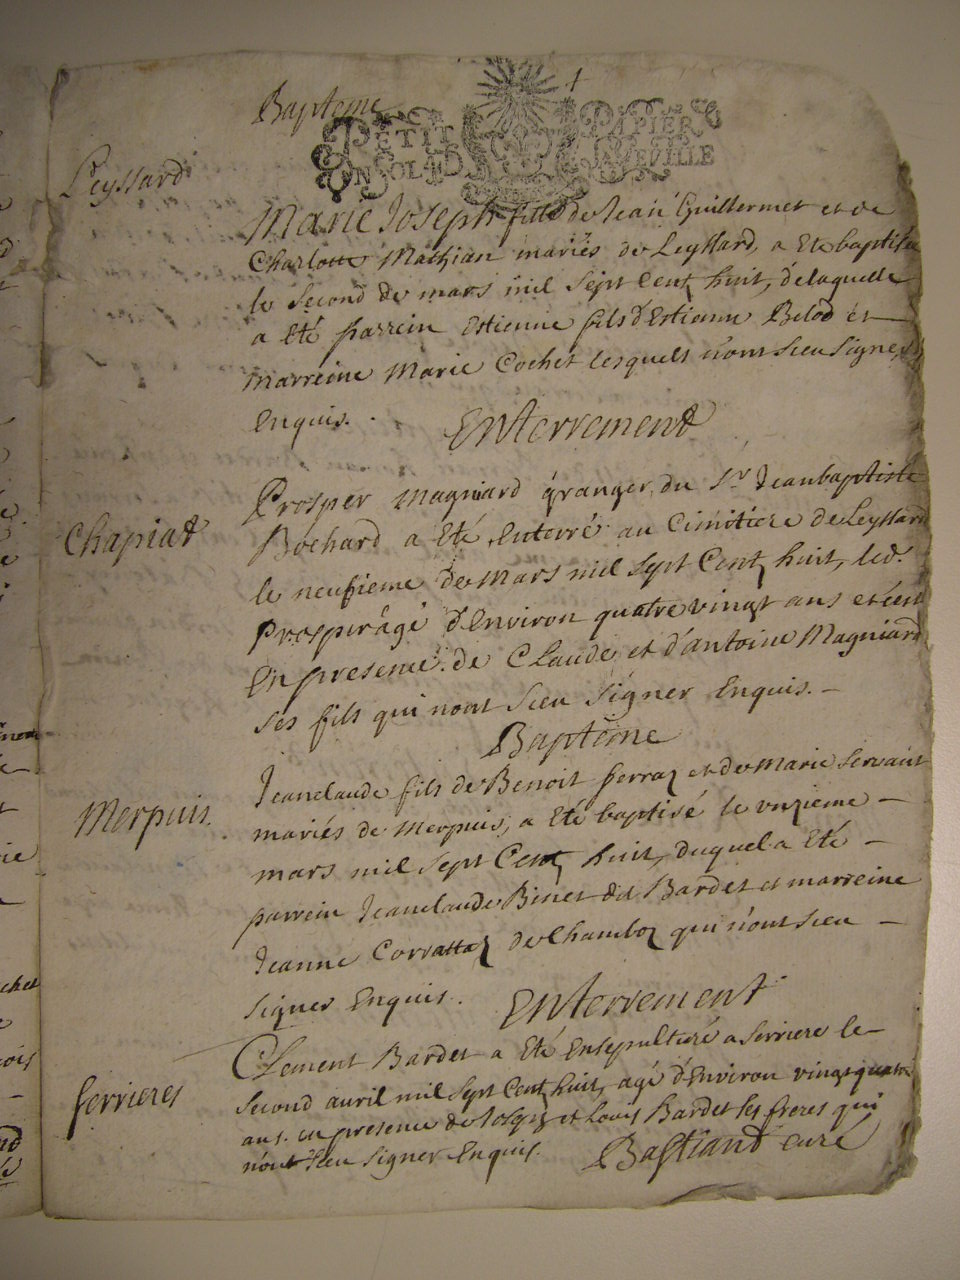 Bapteme
PETIT PAPIER
UN SOL 4 D LA FEVILLE
Leyssard
Marie Joseph fille de Jean Guillermet et de
Charlotte Mathian mariés de Leyssard, a Eté baptisée
le second de mars mil sept Cent huit, de laquelle
a Eté parrein Estienne fils d'Estienne Belod et
marreine Marie Cochet lesquels n'ont sceu signer
Enquis.
Enterrement
Chapiat
Prosper Magniard granger du Sr Jeanbaptiste
Bochard a Eté Enterré au Cimitiere de Leyssard
le neufieme de Mars mil sept Cent huit, led.
Prosper âgé d'Environ quatre vingt ans et c'est
En presence de Claude et d'antoine Magniard
ses fils qui n'ont sceu signer Enquis.
Bapteme
Merpuis.
Jeanclaude fils de Benoit ferraz et de Marie Servant
mariés de Merpuis, a Eté baptisé le unzieme
mars mil sept Cent huit, duquel a Eté
parrein Jeanclaude Binet dit Bardet et marreine
Jeanne Corrattaz de Chamboz qui n'ont sceu
signer Enquis.
Enterrement
ferrieres
Clement Bardet a Eté Ensepulturé a ferriere le
second avril mil sept Cent huit, agé d'Environ vingtquatre
ans. en presence de Joseph et Louis Bardet ses freres qui
n'ont sceu signer Enquis.
Bastiand curé